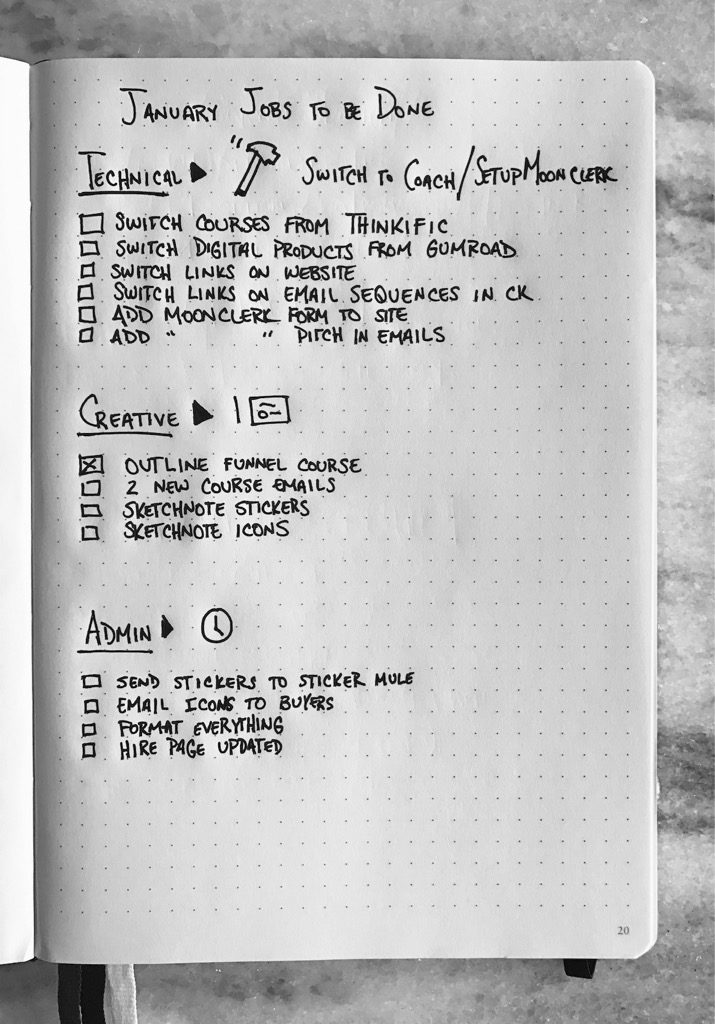 January Jobs to be Done
Technical ▶ Switch to Coach/Setup MoonClerk
☐ Switch courses from Thinkific
☐ Switch digital products from Gumroad
☐ Switch links on website
☐ Switch links on email sequences in CK
☐ Add MoonClerk form to site
☐ Add " " pitch in emails
Creative ▶
☒ Outline funnel course
☐ 2 new course emails
☐ Sketchnote stickers
☐ Sketchnote icons
Admin ▶
☐ Send stickers to Sticker Mule
☐ Email icons to buyers
☐ Format everything
☐ Hire page updated
20